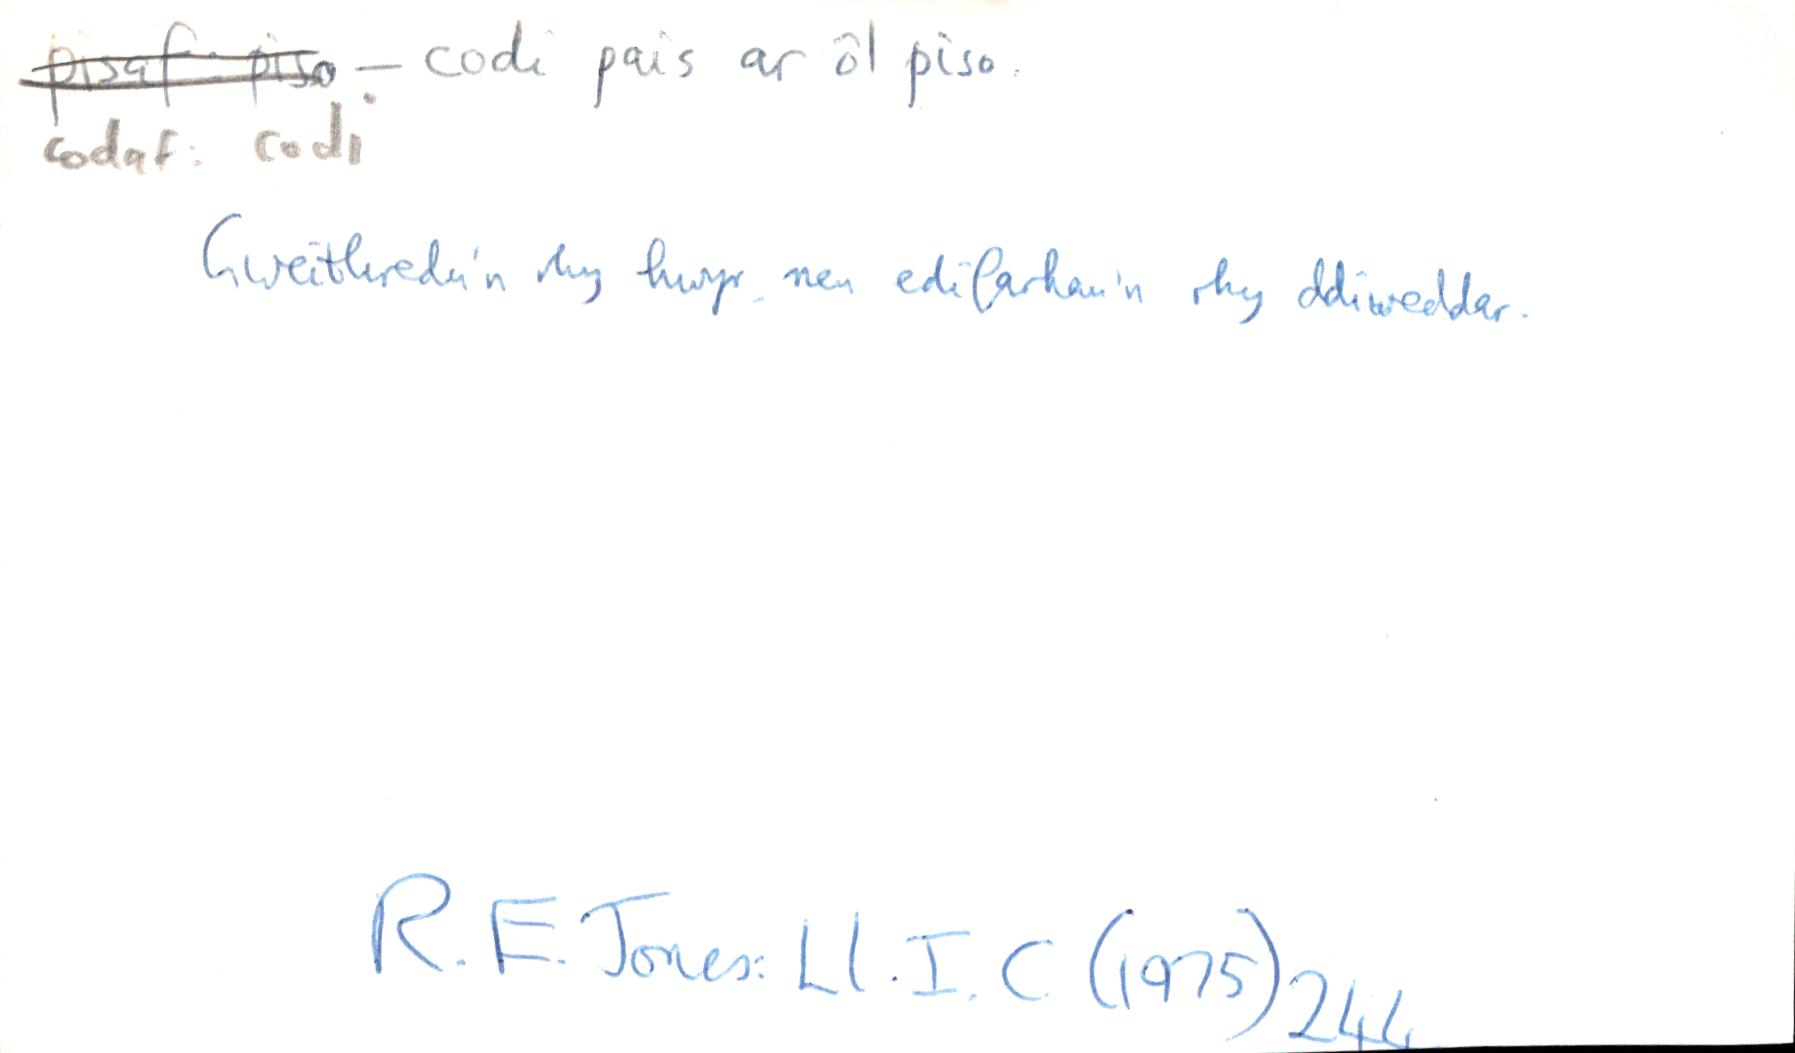 pisaf: piso — codi pais ar ôl piso.
codaf: codi
Gweithredu'n rhy hwyr, neu edifarhau'n rhy ddiweddar.
R. E. Jones: Ll. I. C (1975) 244